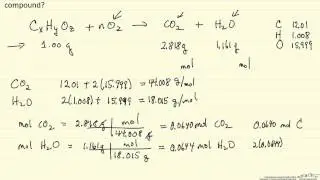 compound?
CxHyOz + nO2 → CO2 + H2O C 12.01
H 1.008
1.00 g 2.818g 1.161g O 15.999
mol mol
CO2 12.01 + 2(15.999) = 44.008 g/mol
H2O 2(1.008) + 15.999 = 18.015 g/mol
mol CO2 = 2.818g | mol / 44.008 g = 0.0640 mol CO2 0.0640 mol C
mol H2O = 1.161g | mol / 18.015 g = 0.0644 mol H2O 2(0.0644)